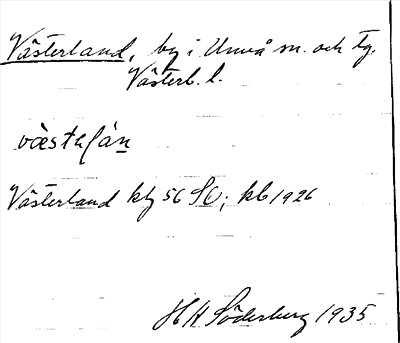 Västerland, by i Umeå sn. och tg.
Västerb. l.
Västerland kbl 56 SO; kb 1926
H H Söderberg 1935